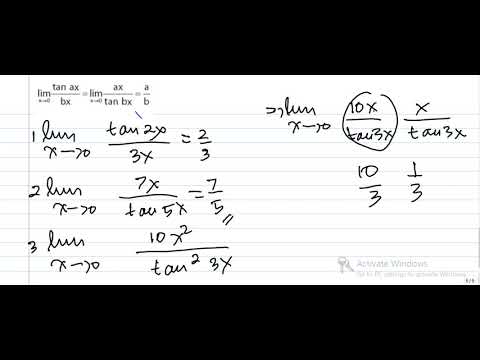 lim x→0 tan ax / bx = lim x→0 ax / tan bx = a / b
1 lim x→0 tan 2x / 3x = 2 / 3
2 lim x→0 7x / tan 5x = 7 / 5
3 lim x→0 10x² / tan² 3x
⇒ lim x→0 10x / tan3x x / tan3x
10 / 3 1 / 3
Activate Windows
Go to PC settings to activate Windows.